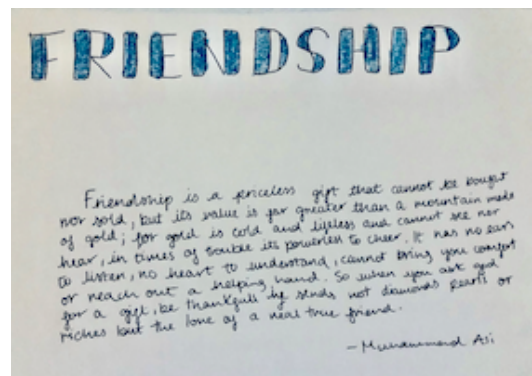 FRIENDSHIP
Friendship is a priceless gift that cannot be bought
nor sold, but its value is far greater than a mountain made
of gold; for gold is cold and lifeless and cannot see nor
hear, in times of trouble its powerless to cheer. It has no ears
to listen, no heart to understand, cannot bring you comfort
or reach out a helping hand. So when you ask god
for a gift, be thankfull he sends not diamonds pearls or
riches but the love of a real true friend.
- Muhammad Ali